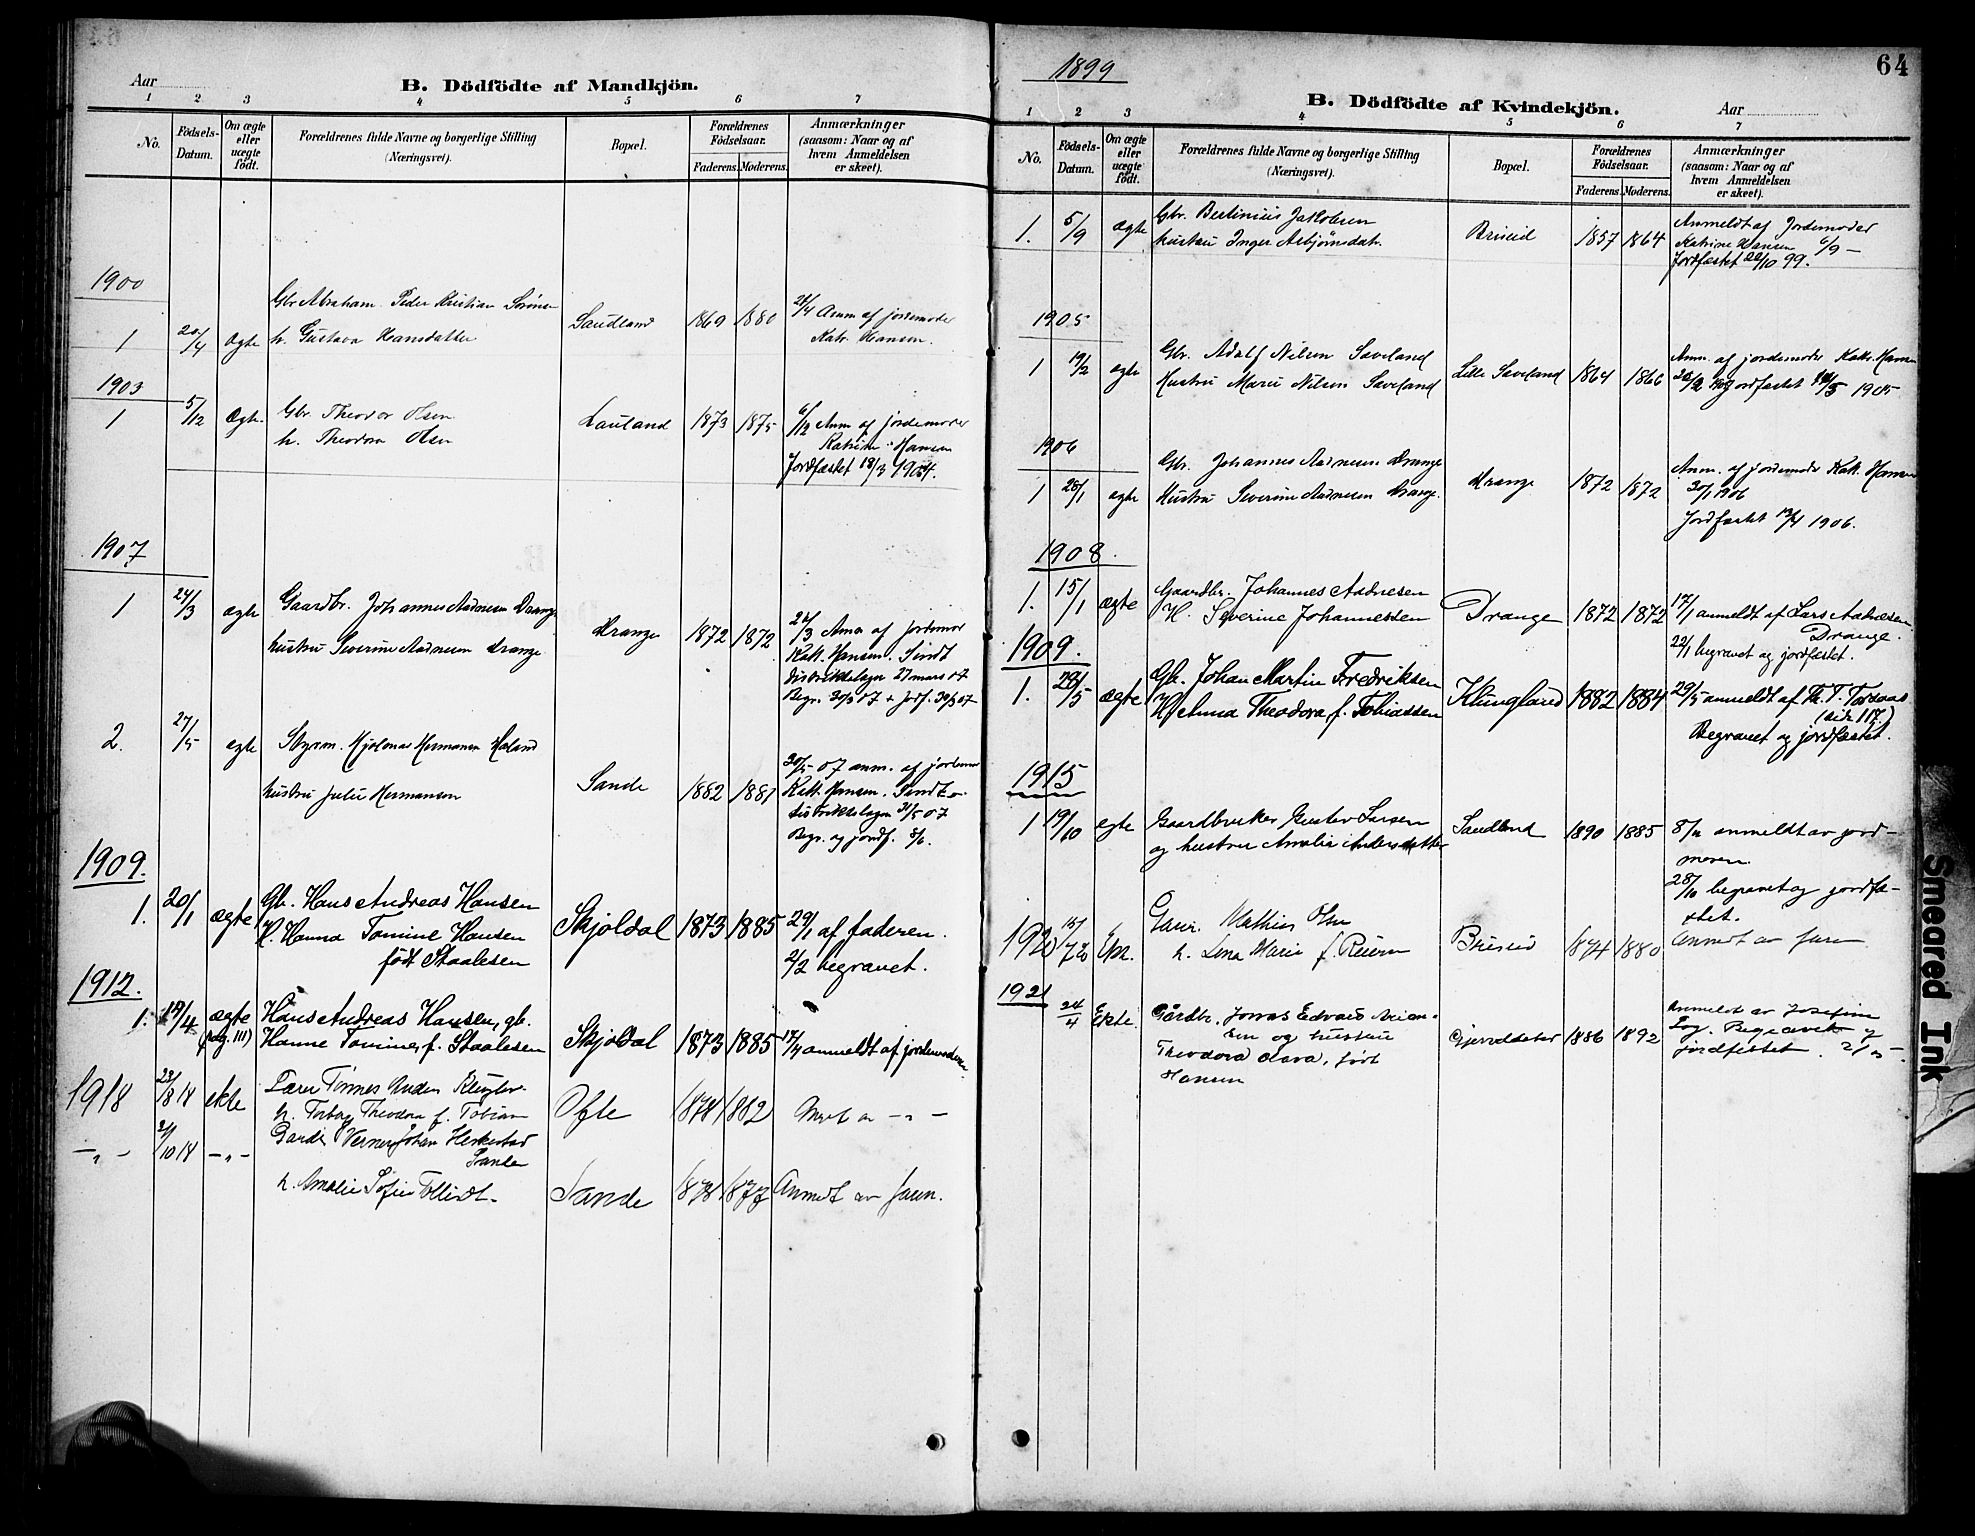 Aar
B. Dödfödte af Mandkjön.
1 2 3 4 5 6 7
No.
Födsels-Datum.
Om ægte eller uægte födt.
Forældrenes fulde Navne og borgerlige Stilling (Næringsvei).
Bopæl.
Forældrenes Födselsaar.
Faderens. Moderens.
Anmærkninger (saasom: Naar og af hvem Anmeldelsen er skeet).
1900
Gbr Abraham Peder Kristian
1 20/4 ægte h. Gustava Hansdatter Saudland 1869 1880 21/4 Anm af jordemoder
Katr. Hansen.
1903
1 5/12 Ægte Gbr. Theodor Olsen
h. Theodora Olsen
Lauland 1873 1875 6/12 Anm af jordemoder
Katrine Hansen
Jordfæstet 18/3 1904.
1907
1 24/3 ægte Gaardbr. Johannes Aadnesen Drange
hustru Severine Aadnesen Drange
Drange 1872 1872 24/3 Anm af jordemor
Katr. Hansen. Sendt
distriktslægen 27 mars 07
Begr. 30/3 07 + jordf. 30/3 07
2. 27/5 egte Styrm. Hjalmar Hermansen Haland
hustru Julie Hermansen
Sande 1882 1881
30/5 07 anm. af jordemor
Katr. Hansen. Sendt
distriktslægen 31/5 07
Begr. og jordf.
1909.
1. 20/1 ægte Gb. Hans Andreas Hansen
H. Hanna Tomine Hansen
født Staalesen
Skjoldal 1873 1885 29/1 af faderen.
2/2 begravet.
1912.
1. 14/4 ægte (pag. 111) Hans Andreas Hansen, gb.
Hanne Tomine, f. Staalesen
Skjoldal 1873 1885 17/4 anmeldt af jordemoderen
1918 23/8 18 ekte Lærer Tønnes Anders
h. Torborg Theodora f. Tobiasen
Ofte 1878 1882
-"- 21/10 18 -"- Gardbr. Verner Johan Heskestad
Sande
h. Amalie Sofie
Sande 1878 1877 Anmeldt av faren.
64
1899
B. Dödfödte af Kvindekjön.
Aar
1 2 3 4 5 6 7
No.
Födsels-Datum.
Om ægte eller uægte födt.
Forældrenes fulde Navne og borgerlige Stilling (Næringsvei).
Bopæl.
Forældrenes Födselsaar.
Faderens. Moderens.
Anmærkninger (saasom: Naar og af hvem Anmeldelsen er skeet).
1. 5/9 ægte Gbr. Bertinius Jakobsen
hustru Inger Asbjørnsdatr.
Briseid 1857 1864 Anmeldt af Jordemoder
Katrine Hansen 6/9 –
Jordfæstet 22/10 99.
1905
1 19/2 ægte Gbr. Adolf Nilsen Saveland
Hustru Marie Nilsen Saveland
Lille Saveland 1864 1866 Anm. af jordemoder Katr. Hansen
20/2 Jordfæstet 14/5 1905
1906
1 28/1 ægte Gbr. Johannes Aadnesen Drange
Hustru Severine Aadnesen Drange.
Drange 1872 1872 Anm. af jordemoder Katr. Hansen
30/1 1906
Jordfæstet 13/4 1906.
1908.
1. 15/1 ægte Gaardbr. Johannes Aadnesen
H. Severine Johannessen
Drange 1872 1872 17/1 anmeldt af Lars Aadnesen
Drange.
22/1 begravet og jordfæstet.
1909.
1. 28/5 ægte Gb. Johan Martin Fredriksen
H. Anna Theodora f. Tobiassen
Klungland 1882 1884 29/5 anmeldt af Th. T.
(side 117.)
Begravet og jordfæstet.
1915
1 19/10 egte Gaardbruker Gustav Larsen
og hustru Amalie Andersdatter
Saudland 1890 1885 anmeldt av jord-
moren.
28/10 begravet og jordfæ-
stet.
1920 Ekte. Mathias Olsen
h. Lena Marie f. Reiersen
Briseid 1874 1880 Anmeldt av faren
1921 24/4 Ekte Gårdbr. Jonas Edvard
sen og hustru
Theodora Olava, født
Hansen
1886 1892 Anmeldt av Josefine
Begravet og
jordfestet.
Smeared Ink